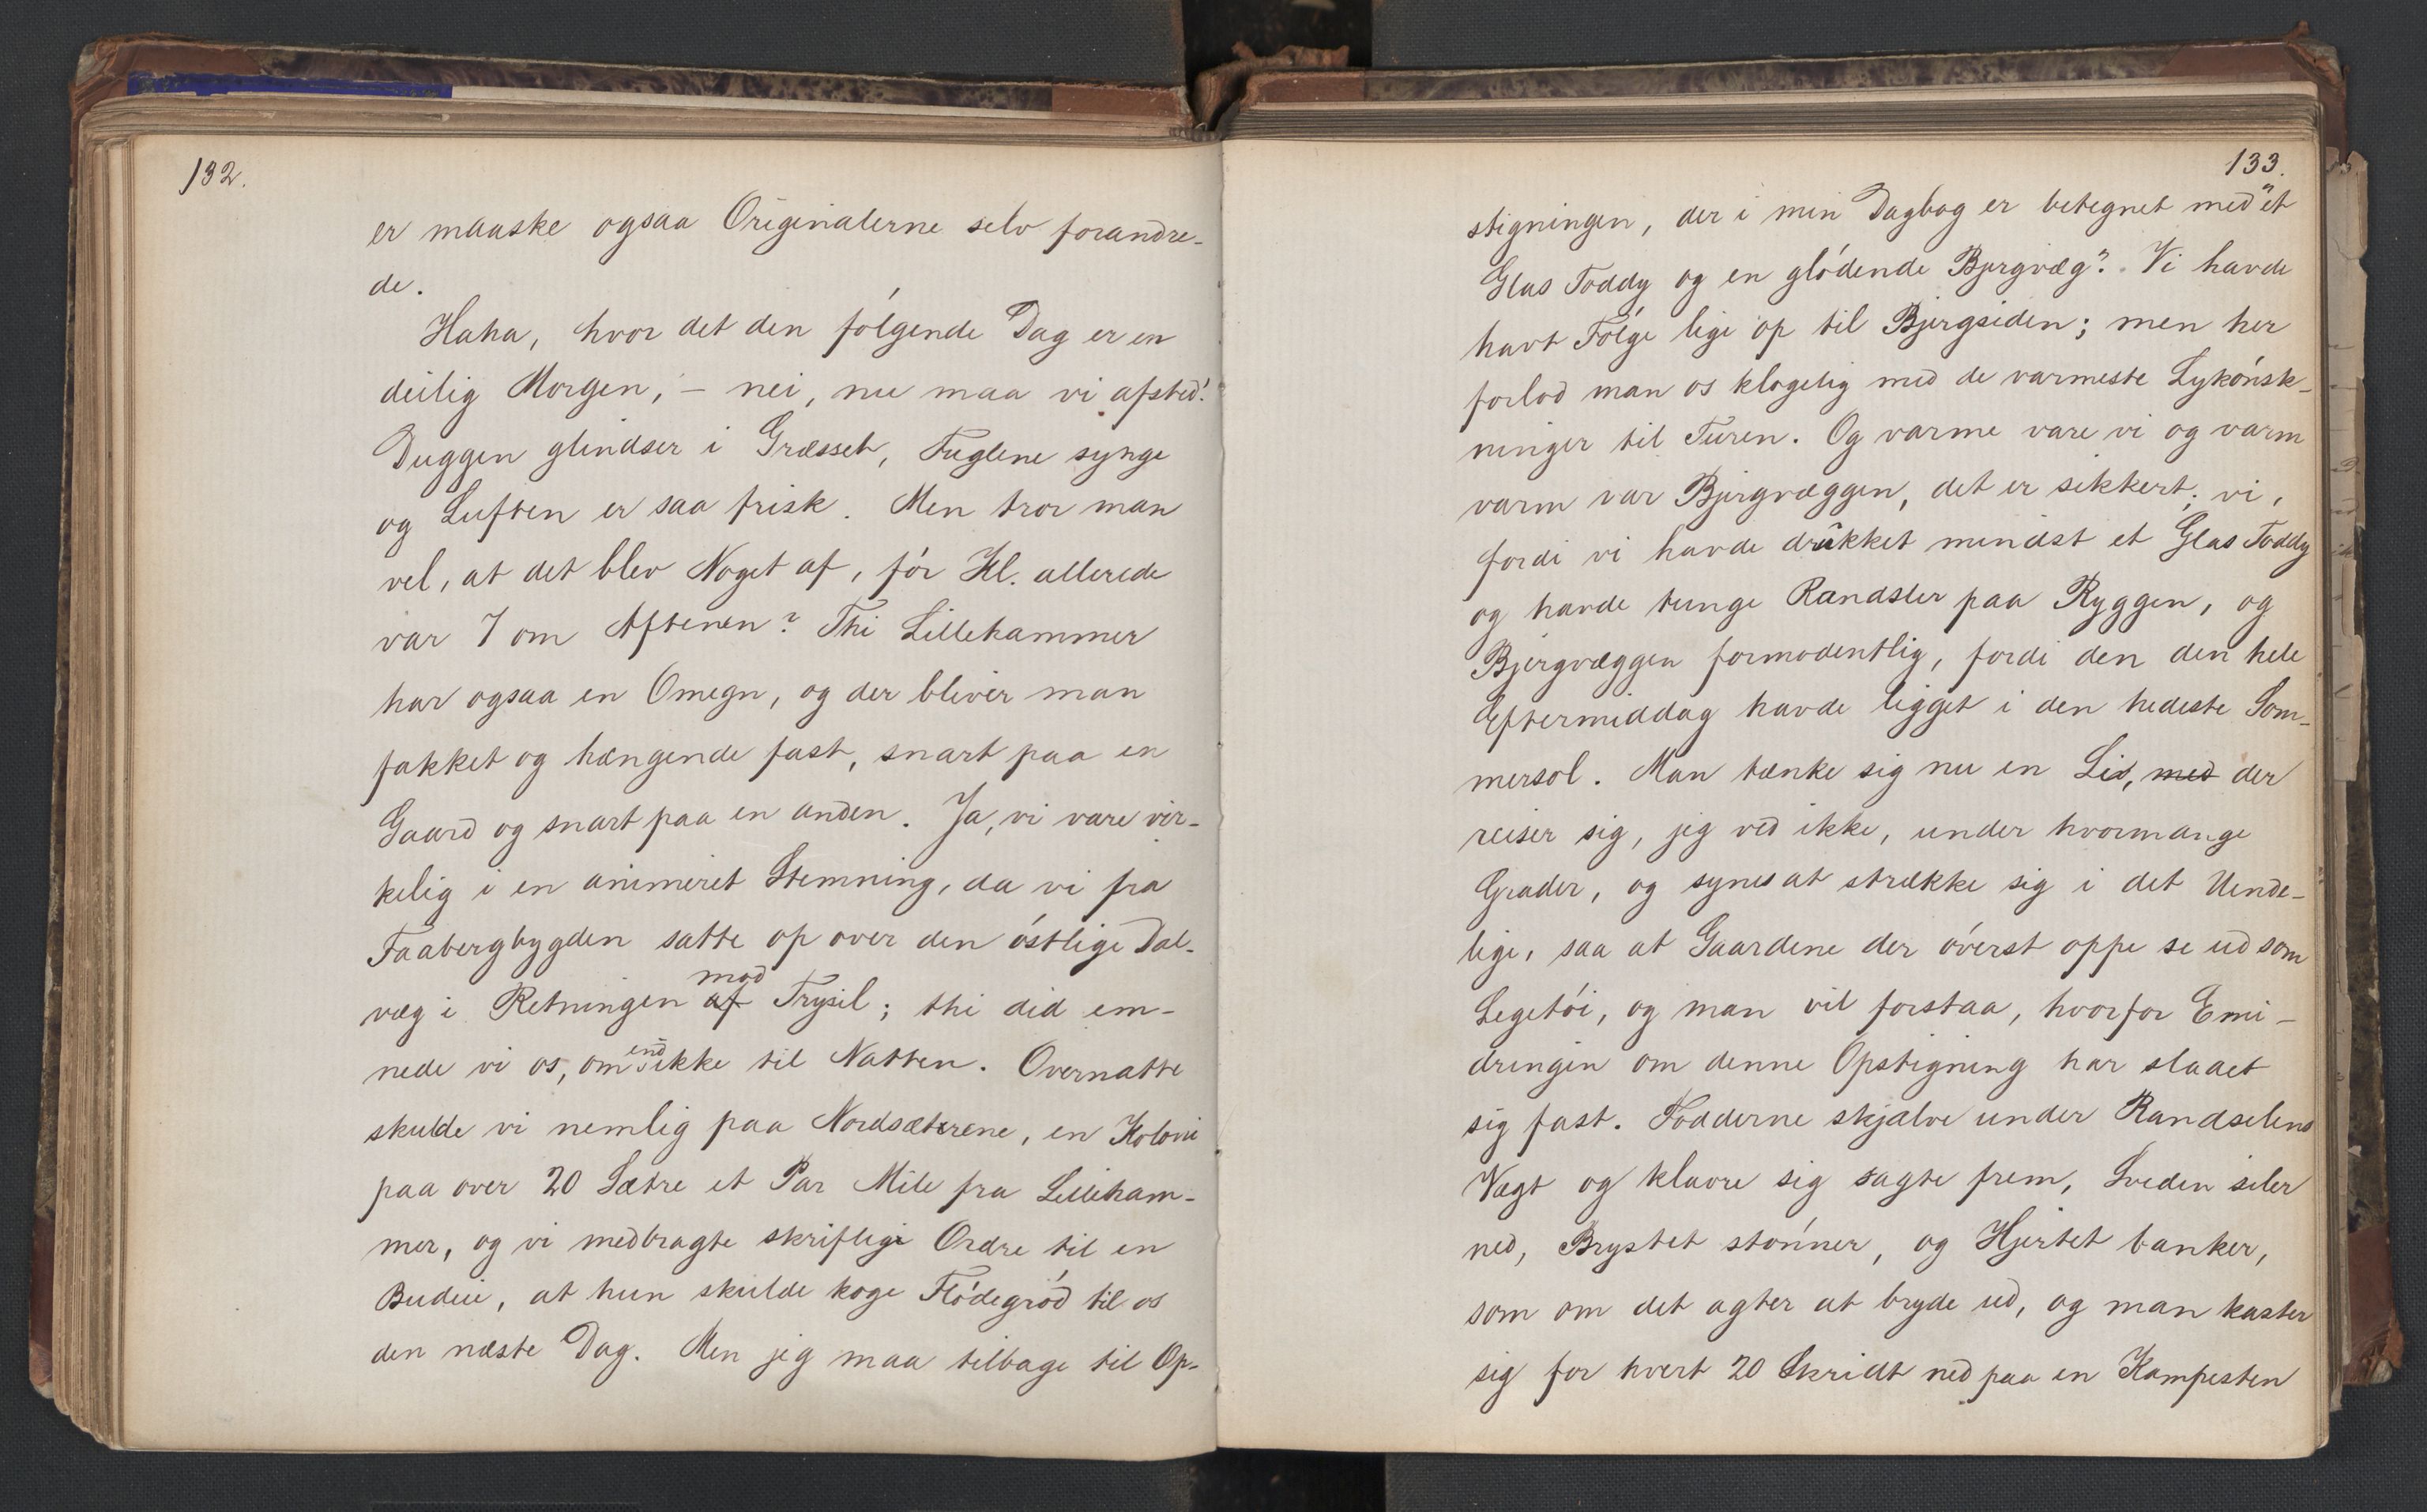 132.
er maaske ogsaa Originalerne selv forandre-
de.
Haha, hvor det den følgende Dag er en
deilig Morgen, – nei, nu maa vi afsted!
Duggen glindser i Græsset, Fuglene synge
og Luften er saa frisk. Men tror man
vel, at det blev Noget af, før Kl. allerede
var 7 om Aftenen? Thi Lillehammer
har ogsaa en Omegn, og der bliver man
fakket og hængende fast, snart paa en
Gaard og snart paa en anden. Ja, vi vare vir-
kelig i en animeret Stemning, da vi fra
Faabergbygden satte op over den østlige Dal-
væg i Retningen af mod Trysil; thi did em-
nede vi os, om end ikke til Natten. Overnatte
skulde vi nemlig paa Nordsætrene, en Koloni
paa over 20 Sætre et Par Mile fra Lilleham-
mer, og vi medbragte skriftlige Ordre til en
Budeie, at hun skulde koge Flødegrød til os
den næste Dag. Men jeg maa tilbage til Op-
133.
stigningen, der i min Dagbog er betegnet med "et
Glas Toddy og en glødende Bjergvæg". Vi havde
havt Følge lige op til Bjergsiden; men her
forlod man os klogelig med de varmeste Lykønsk-
ninger til Turen. Og varme vare vi og varm
varm var Bjergvæggen, det er sikkert; vi,
fordi vi havde drukket mindst et Glas Toddy
og havde tunge Randsler paa Ryggen, og
Bjergvæggen formodentlig, fordi den den hele
Eftermiddag havde ligget i den hedeste Som-
mersol. Man tænke sig nu en Li, med der
reiser sig, jeg ved ikke, under hvormange
Grader, og synes at strække sig i det Uende-
lige, saa at Gaardene der øverst oppe se ud som
Legetøi, og man vil forstaa, hvorfor Erin-
dringen om denne Opstigning har slaaet
sig fast. Fødderne skjælve under Randselens
Vægt og klavre sig sagte frem, Sveden siler
ned, Brystet stønner, og Hjertet banker,
som om det agter at bryde ud, og man kaster
sig for hvert 20 Skridt ned paa en Kampesten